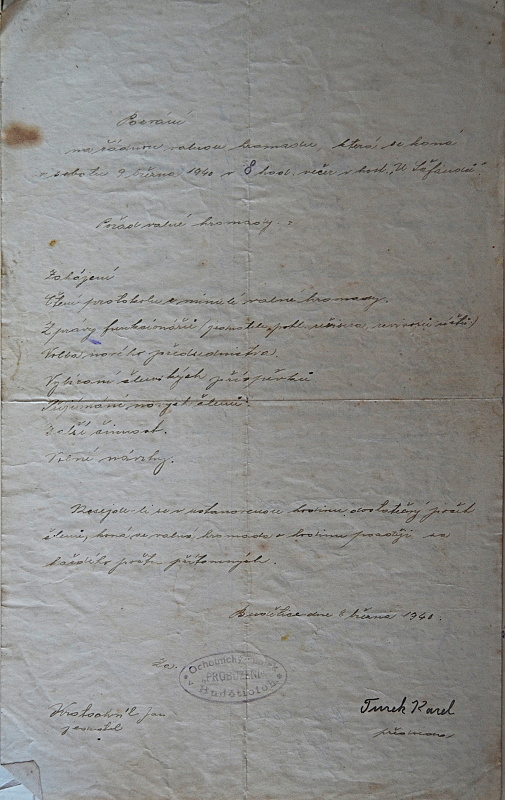 Pozvání
na řádnou valnou hromadu, která se koná
v sobotu 9 března 1940 v 8 hod. večer v host. „U Šafandů“
Pořad valné hromady. :
Zahájení
Čtení protokolu z minulé valné hromady.
Zprávy funkcionářů (jednatele, pokl. revisorů účtů)
Volba nového předsednictva.
Vybírání členských příspěvků
Přijímání nových členů.
Další činnost.
Volné návrhy.
Nesejde-li se v ustanovenou hodinu dostatečný počet
členů, koná se valná hromada o hodinu později za
každého počtu přítomných.
Budětice dne 8 března 1940.
Za
Ochotnický
"PROBUZENÍ"
v Buděticích
Jan
jednatel
Turek Karel